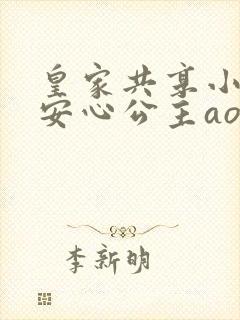 皇家共享小
安心公主ao
李新明